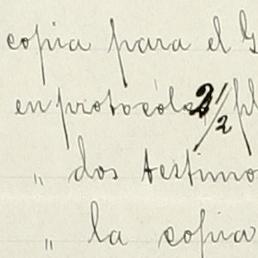 copia para el G
en protocolo 2 1/2 pl
" dos testimo
" la copia